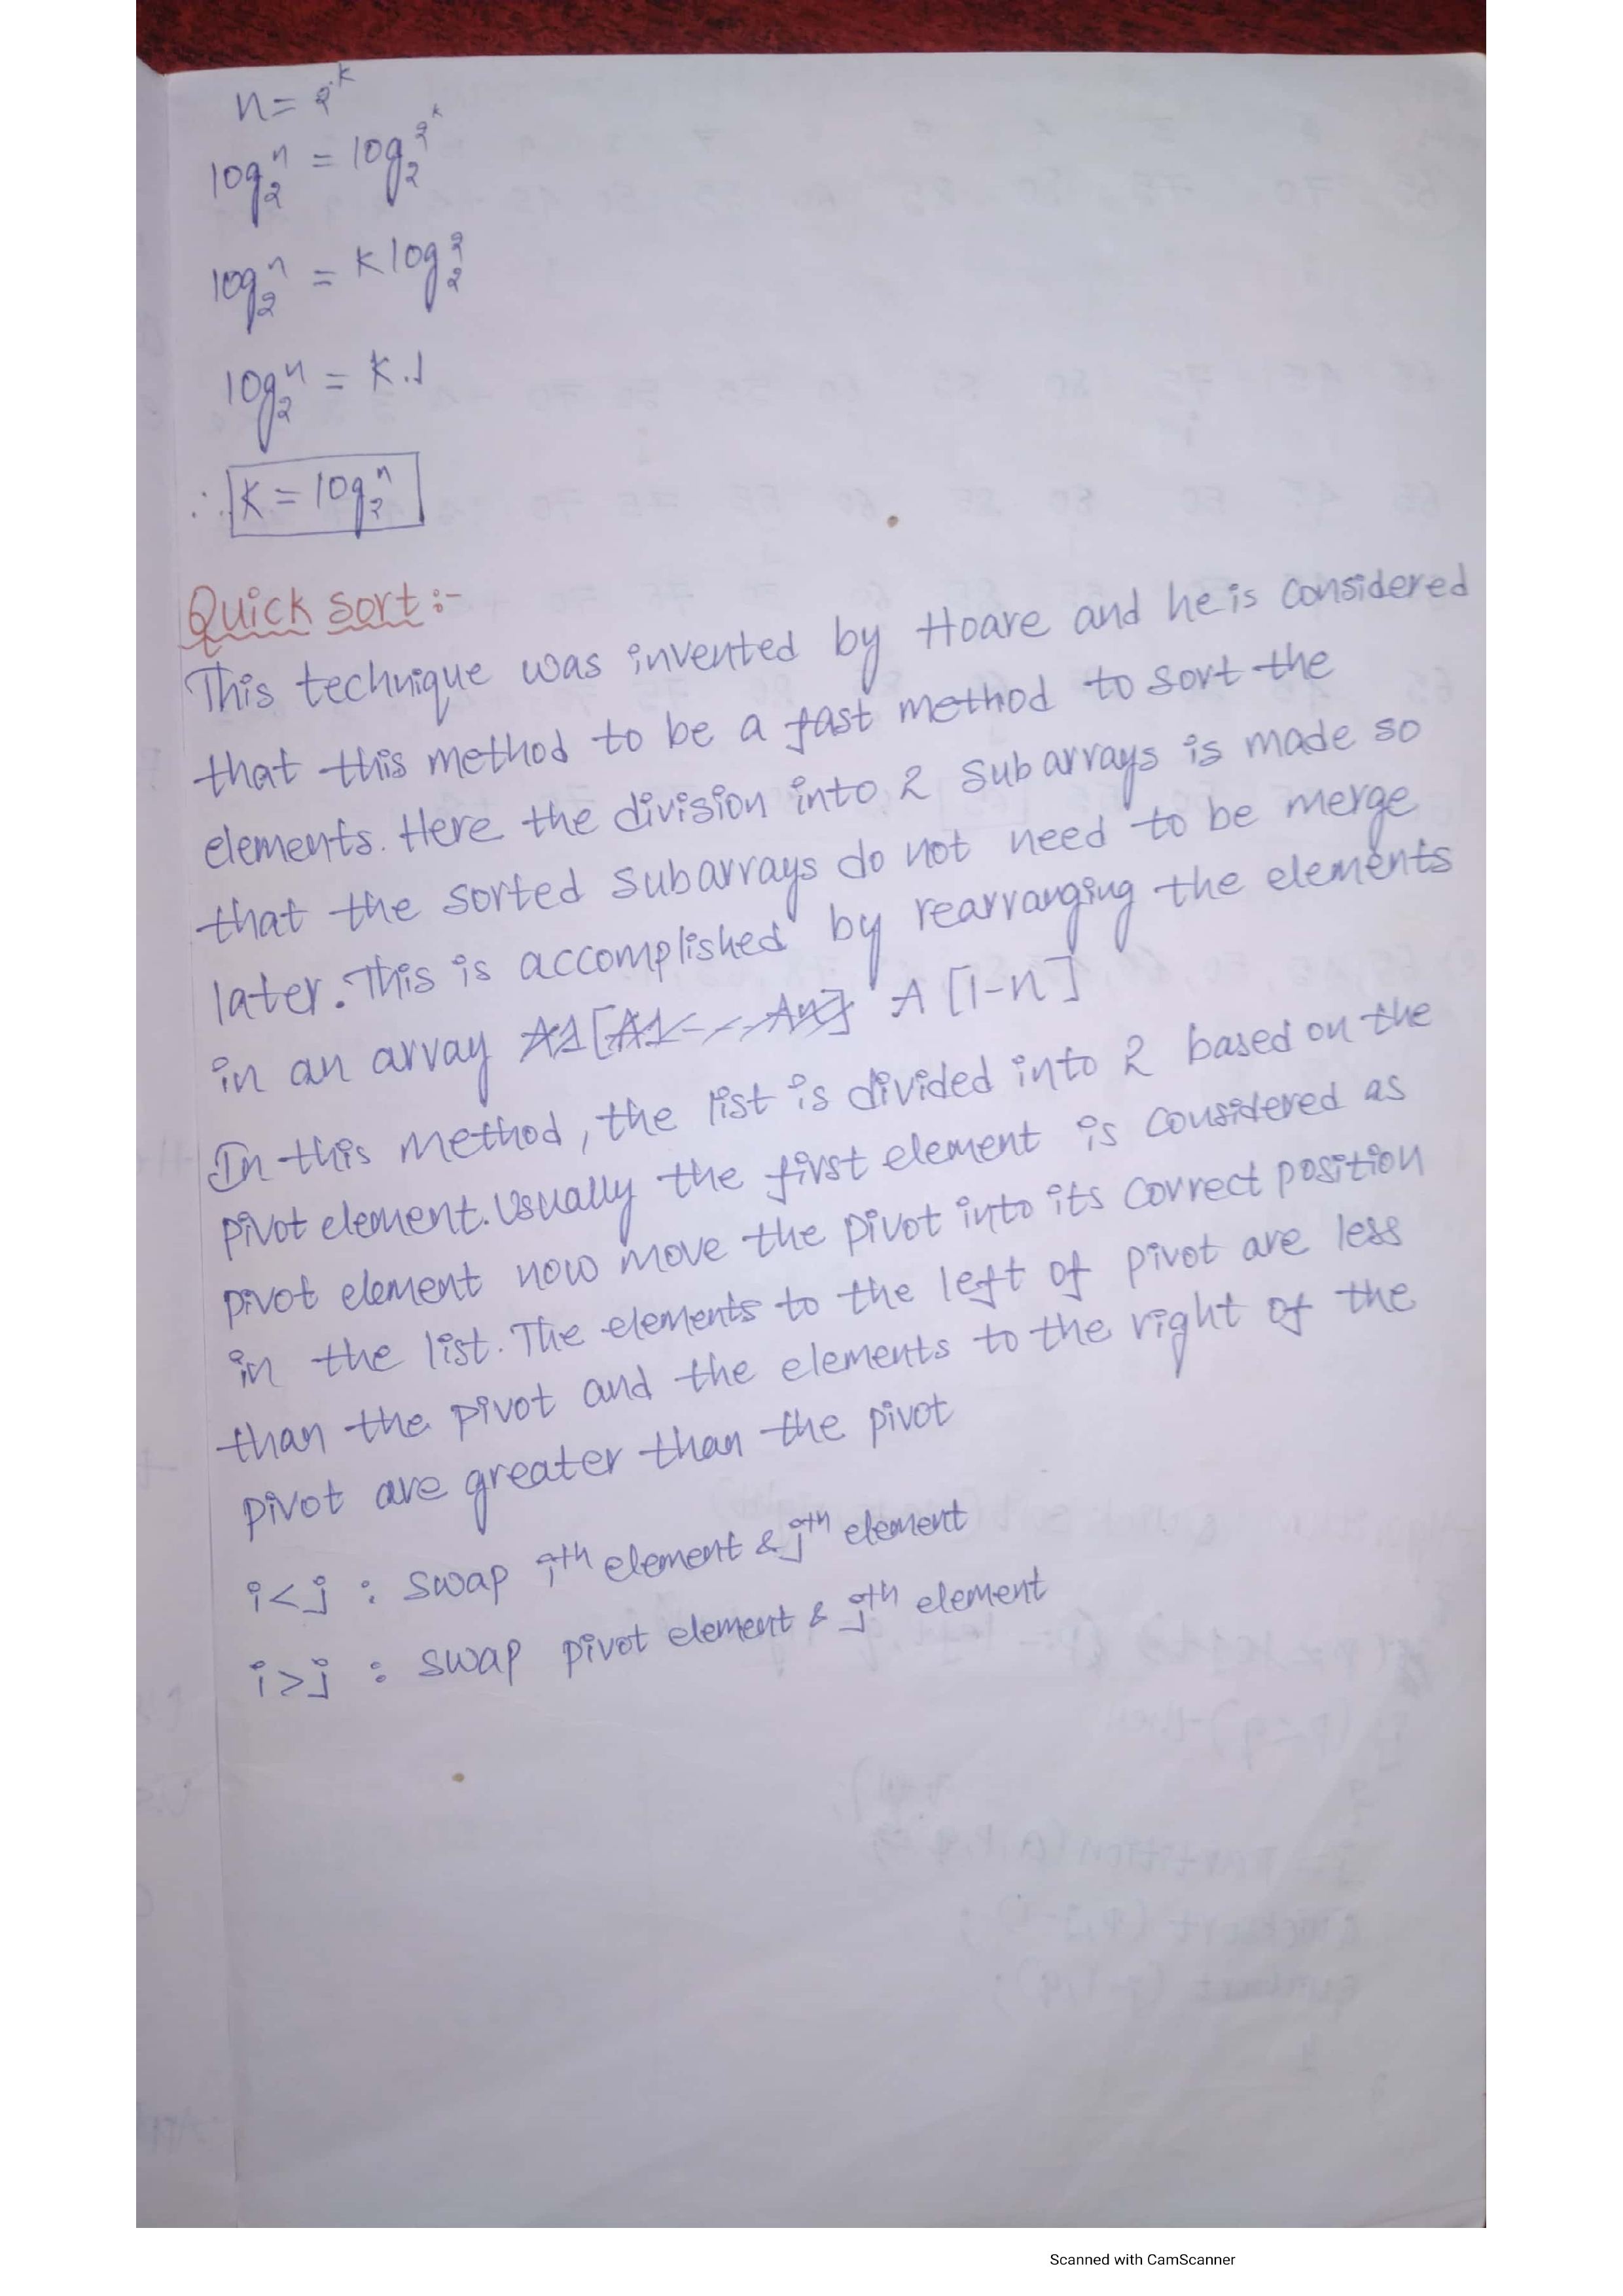 n = 2^k
log₂ⁿ = log₂^2^k
log₂ⁿ = K log₂²
log₂ⁿ = K.1
∴ K = log₂ⁿ
Quick sort :-
This technique was invented by Hoare and he is considered
that this method to be a fast method to sort the
elements. Here the division into 2 subarrays is made so
that the sorted subarrays do not need to be merge
later. This is accomplished by rearranging the elements
in an array A1[A1---An] A [1-n]
In this method, the list is divided into 2 based on the
pivot element. Usually the first element is considered as
pivot element now move the pivot into its correct position
in the list. The elements to the left of pivot are less
than the pivot and the elements to the right of the
pivot are greater than the pivot
i<j : swap ith element & jth element
i>j : swap pivot element & jth element
Scanned with CamScanner